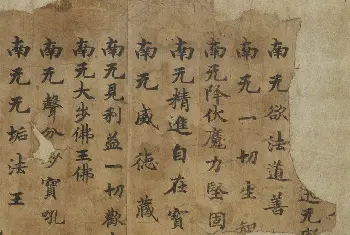 南无欲法道善
南无一切生知
南无降伏魔力堅固
南无精進自在寶
南无威德藏
南无見利益一切歡
南无大步佛王佛
南无聲分步寶吼
南无无垢法王